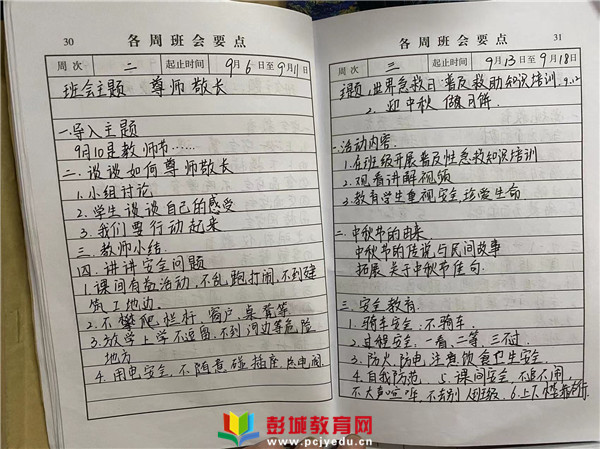 30
各周班会要点
周次 二 起止时间 9月6日至9月11日
班会主题 尊师敬长
一.导入主题
9月10是教师节……
二.谈谈如何尊师敬长
1.小组讨论
2.学生谈谈自己的感受
3.我们要行动起来
三.教师小结
四.讲讲安全问题
1.课间有益活动,不乱跑打闹,不到建
筑工地边.
2.不攀爬栏杆、窗户、桌凳等
3.放学上学不逗留,不到河边等危险
地方
4.用电安全,不随意碰插座、总电闸
各周班会要点
31
周次 三 起止时间 9月13日至9月18日
主题1.世界急救日·普及救助知识培训.9.12
2.迎中秋 做月饼.
一.活动内容.
1.在班级开展普及性急救知识培训
2.观看讲解视频
3.教育学生重视安全,珍爱生命
二.中秋节的由来
中秋节的传说与民间故事
拓展关于中秋节佳句.
三.安全教育.
1.骑车安全:不骑车.
2.过程安全,一看,二等,三过.
3.防火、防电,注意饮食卫生安全
4.自我防范. 5.课间安全,不追不闹,
不大声喧哗,不去别人班级.6.上下楼靠右行
彭城教育网
www.pcjyedu.cn